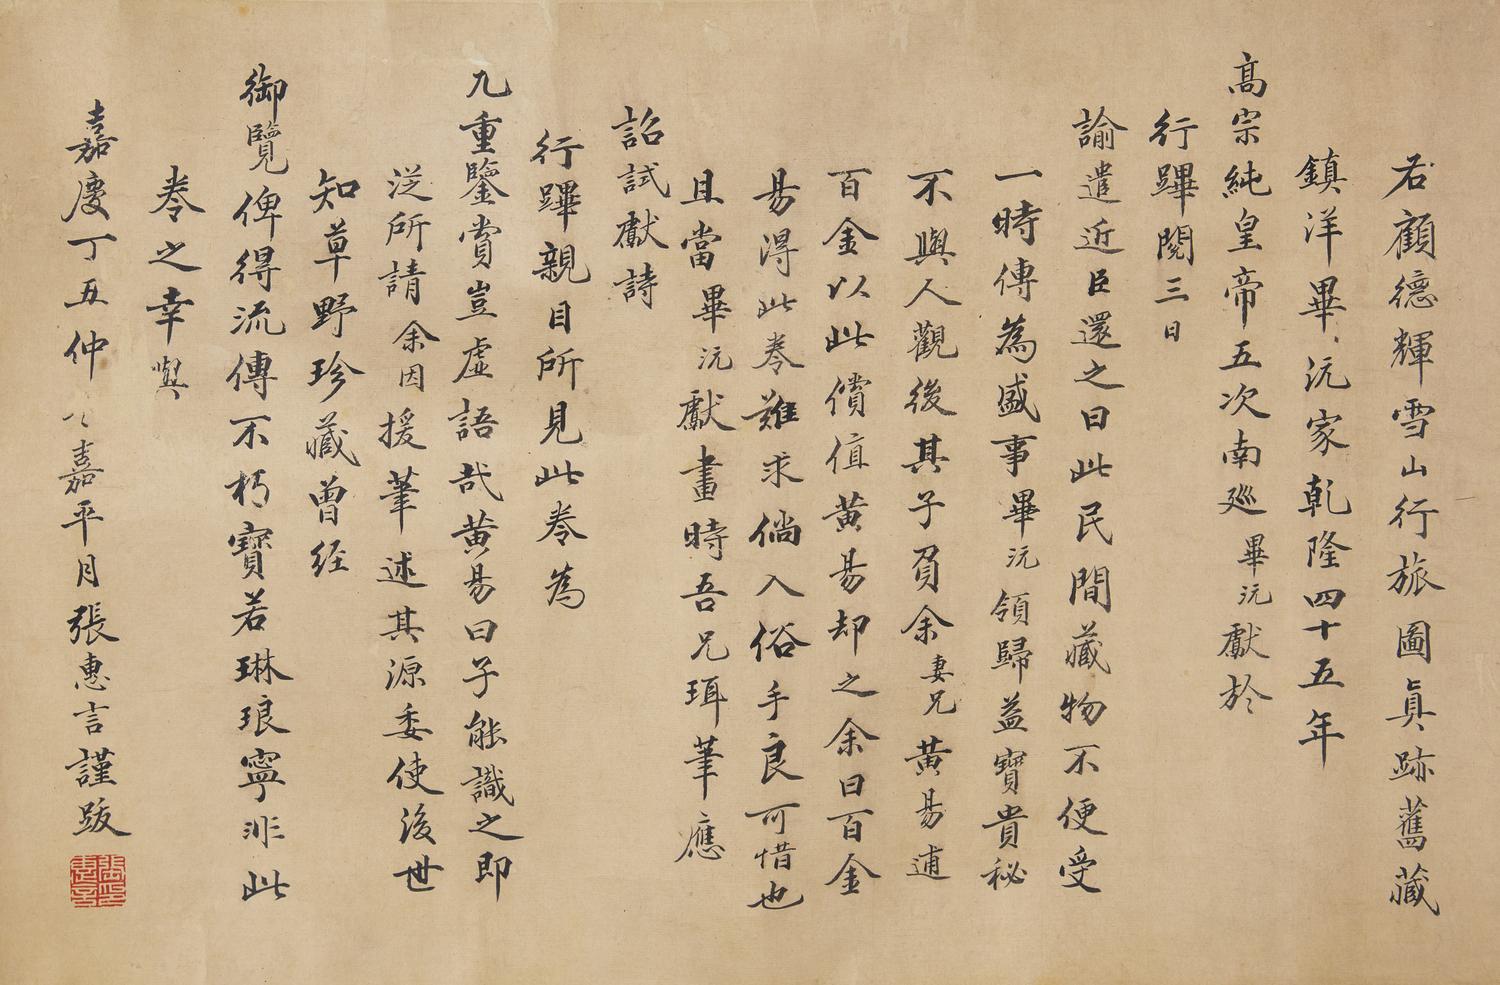 右顧德輝雪山行旅圖真跡舊藏
鎮洋畢沅家乾隆四十五年
高宗純皇帝五次南巡畢沅獻於
行蹕閱三日
諭遣近臣還之曰此民間藏物不便受
一時傳為盛事畢沅領歸益寶貴秘
不與人觀後其子貧余妻兄黃易逋
百金以此償值黃易却之余曰百金
易得此卷難求倘入俗手良可惜也
且當畢沅獻畫時吾兄珥筆應
詔試獻詩
行蹕親目所見此卷為
九重鑒賞豈虛語哉黃易曰子能識之即
從所請余因援筆述其源委使後世
知草野珍藏曾經
御覽俾得流傳不朽寶若琳琅寧非此
卷之幸與
嘉慶丁五仲嘉平月張惠言謹跋